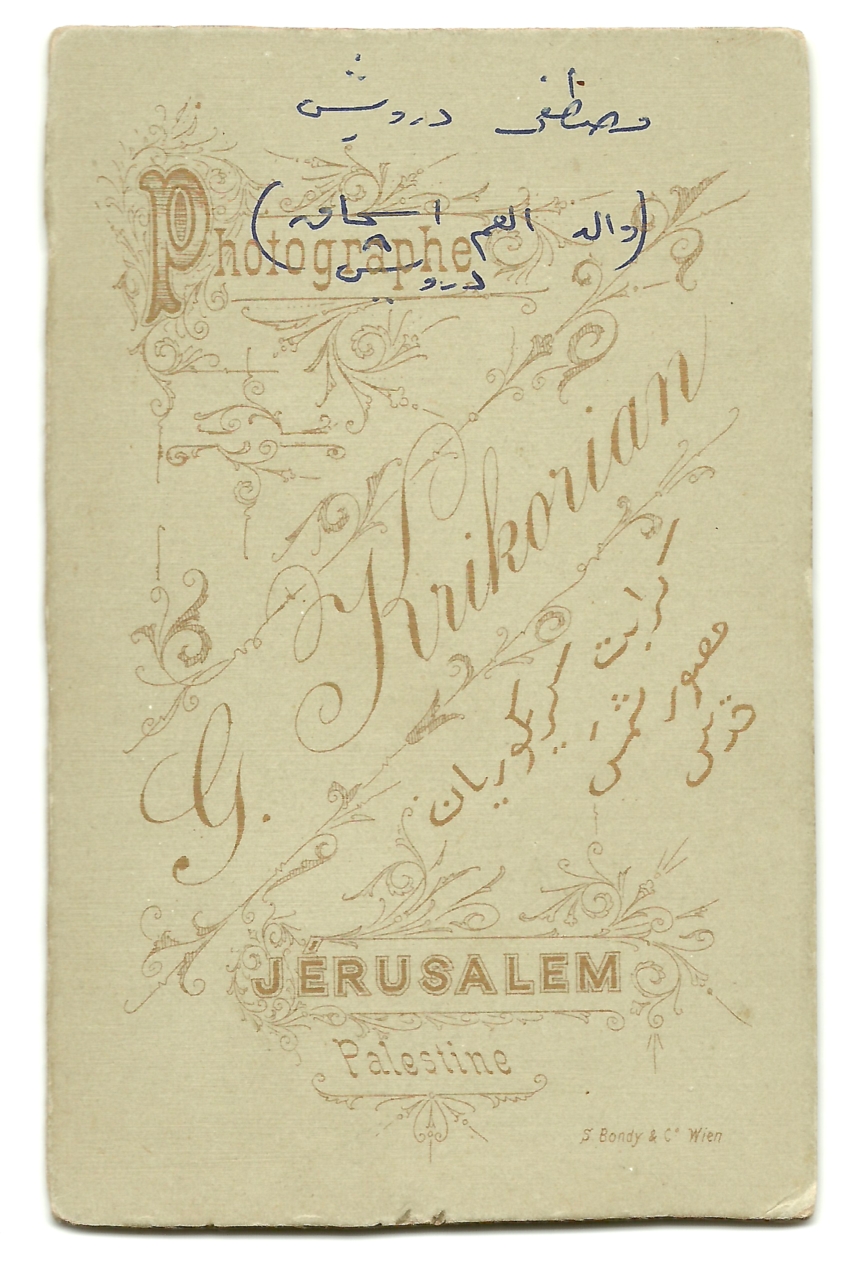 مصطفى درويش
(والد العم اسحاق
درويش)
Photographe
G. Krikorian
كيريكوريان
مصور شمسى
قدس
JÉRUSALEM
Palestine
S. Bondy & Co Wien